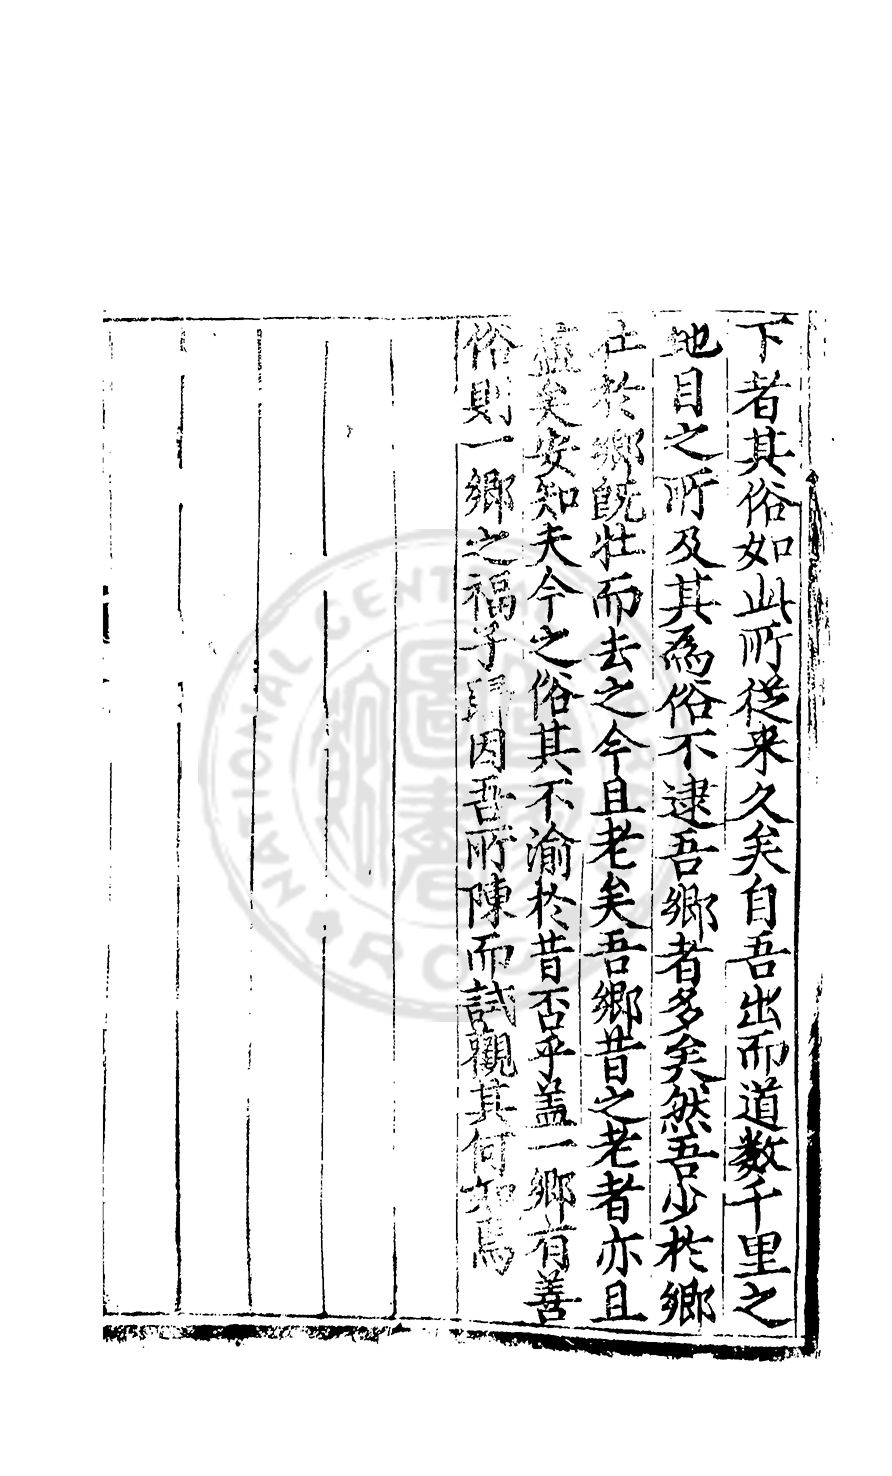 下者其俗如此所從来久矣自吾出而道數千里之
地目之所及其為俗不逮吾鄉者多矣然吾少扵鄉
壮扵鄉既壮而去之今且老矣吾鄉昔之老者亦且
盡矣安知夫今之俗其不渝扵昔否乎盖一鄉有善
俗則一鄉之福子歸因吾所陳而試觀其何如焉
NATIONAL CENTRAL
R.O.C